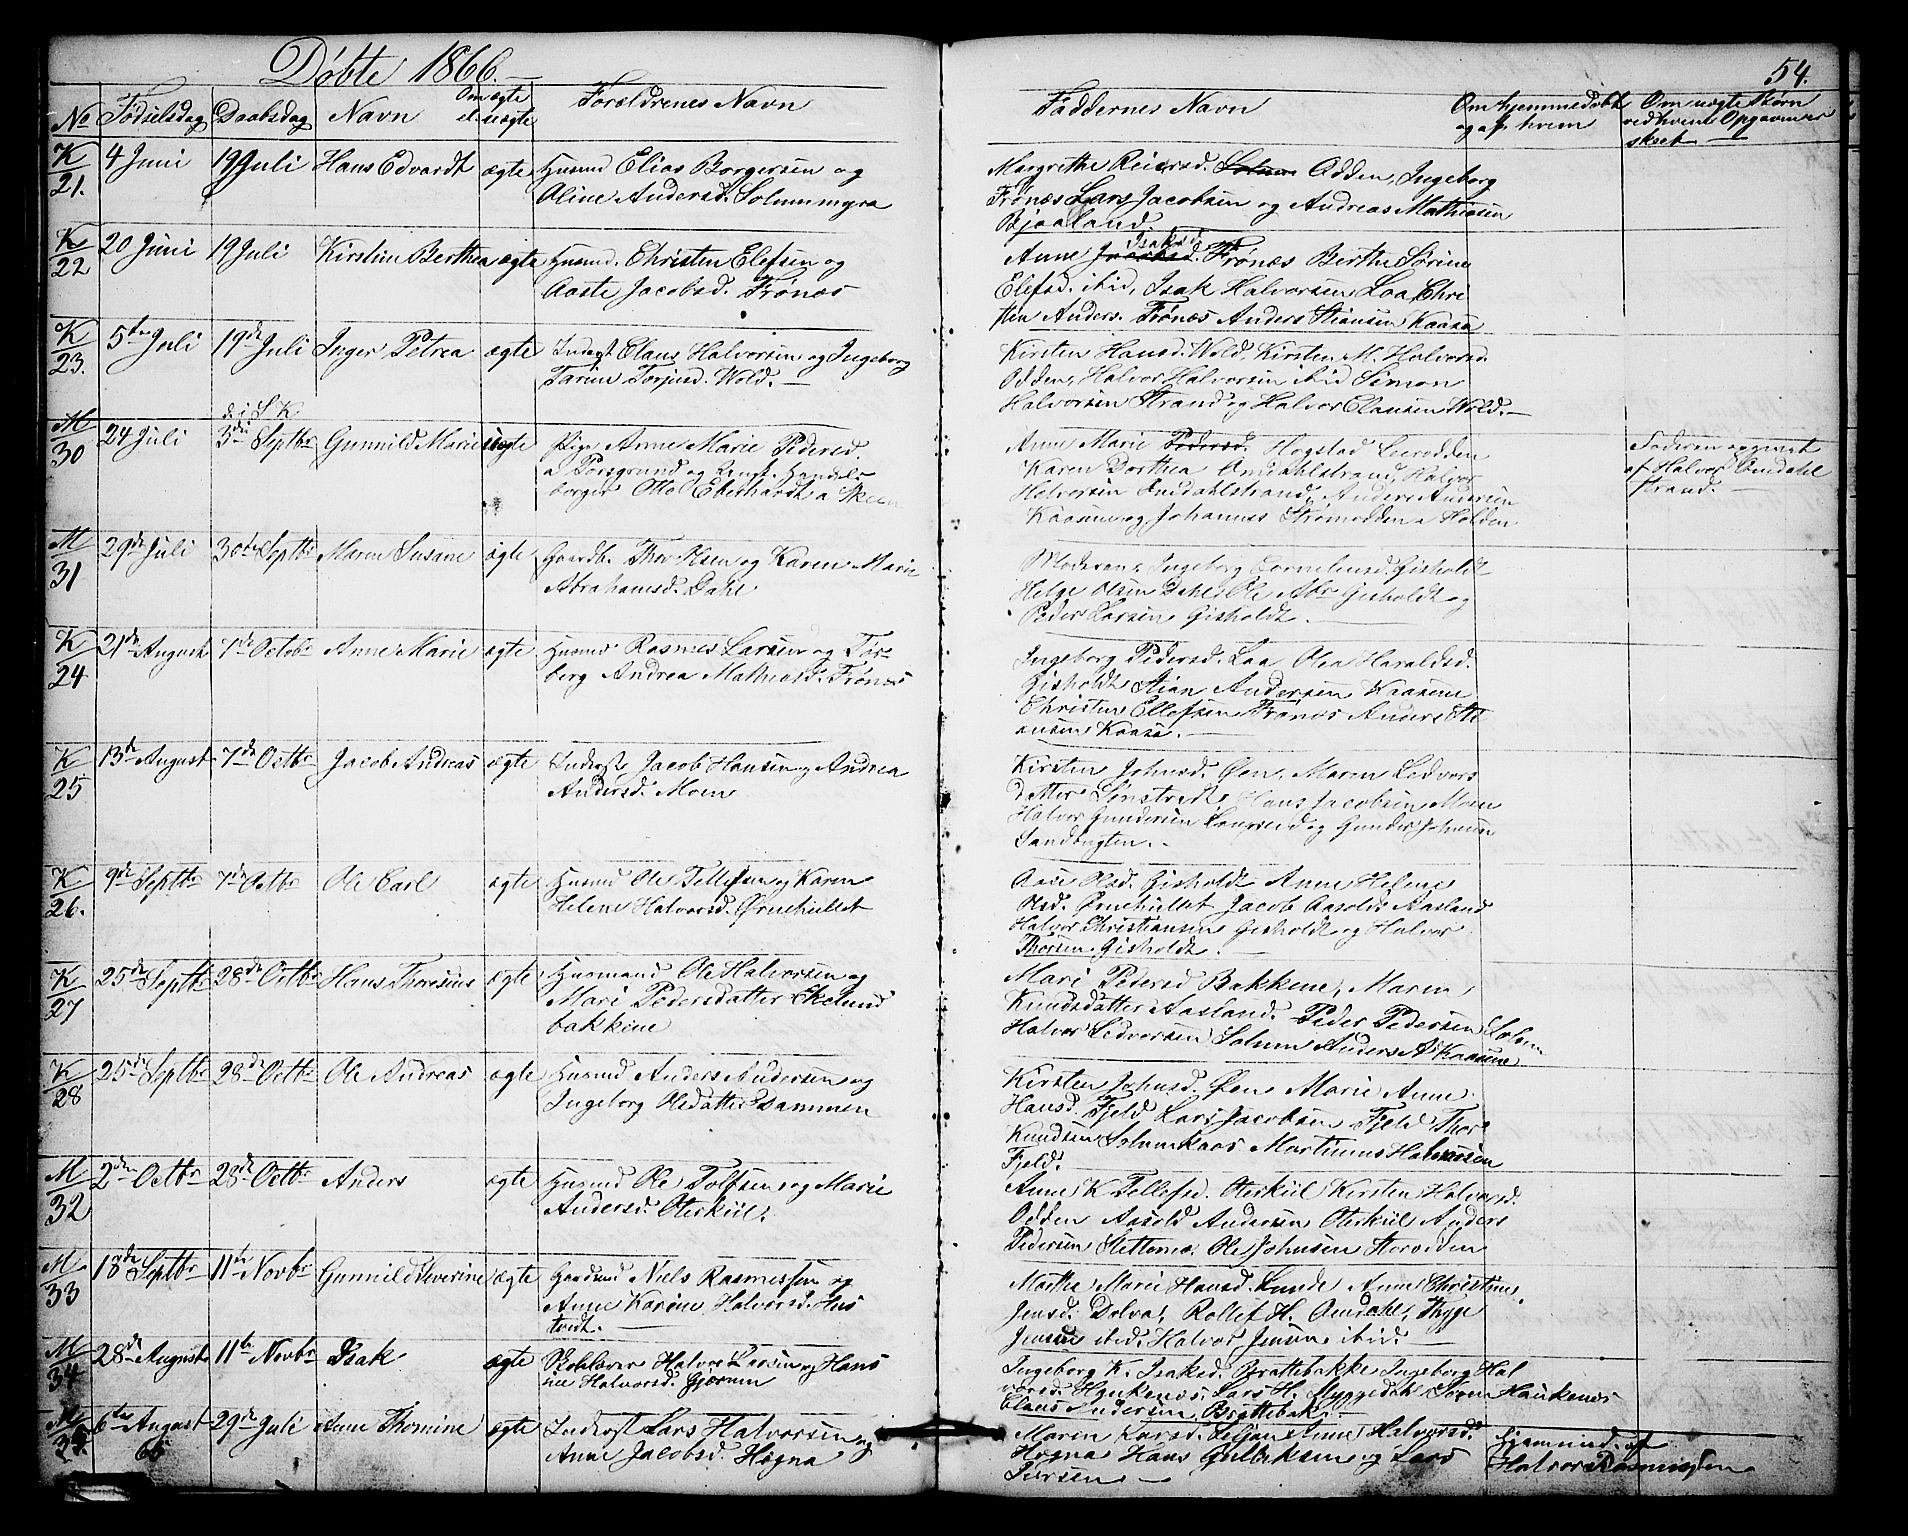 Døbte 1866.
54.
No Fødselsdag Daabsdag Navn Om ægte el. uægte Forældrenes Navn
Faddernes Navn Om hjemmedøbt og af hvem Om uægte Børn ved hvem Opgaven er skeet
K 21. 4 Juni 19 Juli Hans Edvardt ægte Husmd Elias Borgersen og
Oline Andersd. Solummyra
Margrethe Reiersd. Solum Odden, Ingeborg
Frønæs Lars Jacobsen og Andreas Mathisen
Bjaaland.
K 22 20 Juni 19 Juli Kirstine Berthea ægte Husmd. Christen Elefsen og
Aaste Jacobsd. Frønæs
Anne Jacobsd. Isaksd. Frønæs Berthe Sørine
Elefsd. ibid, Isak Halvorsen Laa, Chri
sten Anders. Frønæs Anders Stiansen Kaasa
K 23. 5te Juli 19de Juli Inger Petrea ægte Inderst Claus Halvorsen og Ingeborg
Tarine Torjusd. Wold.
Kirsten Hansd. Wold, Kirsten M. Halvorsd.
Odden, Halvor Halvorsen ibid Simon
Halvorsen Strand og Halvor Clausen Wold.
M 30 24 Juli 3die Septbr Gunnild Marie uægte Pige Anne Marie Pedersd.
a Porsgrund og Handels
borger Otto Eberhardt a Skeen
Anne Marie Pedersd. Hogstad
Karen Dorthea Omdahlstrand, Halvor
Halvorsen Omdahlstrand, Anders Andersen
Kaasene og Johannes Strømodden a Holden
Faderen opgivet
af Halvor Omdahl
strand.
M 31 29de Juli 30te Septbr Maren Susane ægte Gaardbr. Thor Olsen og Karen Marie
Abrahamsd. Dahl
Moderen, Ingeborg Corneliusd. Gisholdt
Helge Olsen Dahl, Ole Abr. Gisholdt og
Peder Larsen Gisholdt.
K 24 21de August 7de Octob Anne Marie ægte Husmd Rasmus Larsen og Tor
berg Andrea Mathiasd. Frønæs
Ingeborg Pedersd. Laa Olea Haraldsd.
Gisholdt Stian Andersen Kaasene
Christen Ellefsen Frønæs Anders Sti
ansen Kaasa.
K 25 13de August 7de Octbr Jacob Andreas ægte Inderst Jacob Hansen og Andrea
Andersd. Moen
Kirsten Johnsd. Øen, Maren Sedvors
datter Hans Jacobsen Moen
Halvor Gundersen Langreid og Gunder Johnsen
Sandbugten.
K 26. 9de Septbr 7de Octbr Ole Carl ægte Husmd Ole Tellefsen og Karen
Helene Halvorsd. Ørnehullet
Aase Olsd. Gisholdt Anne Helene
Olsd. Ørnehullet Jacob Aasolds Aasland
Halvor Christiansen Gisholdt og Halvor
Thorsen Gisholdt.
K 27 25de Septbr 28de Octbr Hans Thoresius ægte Husmand Ole Halvorsen og
Mari Pedersdatter Ekelund
bakkene
Mari Pedersd Bakkene, Maren
Knudsdatter Aasland. Peder Pedersen Solum
Halvor Sedvorsen Solum Anders A. Kaasene
K 28 25de Septbr 28de Octbr Ole Andreas ægte Husmd Anders Andersen og
Ingeborg Olsdatter Dammen
Kirsten Johnsd. Øen Marie Anne
Hansd. Fjeld Lars Jacobsen Fjeld Thor
Knudsen Solumkaas Martinus Halvorsen
Fjeld.
M 32 2den Octbr 28de Octbr Anders ægte Husmd Ole Tolfsen og Marie
Andersd. Oterkiil.
Anne K Tellefsd. Oterkiil Kirsten Halvorsd.
Odden Aasold Andersen Oterkiil Anders
Pedersen Sletteme Ole Johnsen Storodden
M 33 18de Septbr 11te Novbr Gunnild Severine ægte Gaardmd Niels Rasmussen og
Anne Karine Halvorsd. Hus
tvedt.
Marthe Marie Hansd. Lunde Anne Christine
Jensd. Dolva, Rollef H. Omdahl, Thyge
Jensen ibid. Halvor Jensen ibid.
M 34 28de August 11te Novbr Isak ægte Skolelærer Halvor Larsen og Hans
ine Halvorsd. Gjærum
Ingeborg K. Isaksd. Brattebakke Ingeborg Hal
vorsd. Haukenæs, Lars H. Søren Haukenæs
Claus Andersen Brattebak.
M 35. 6te August 65 29de Juli Anne Thomine ægte Inderst Lars Halvorsen og
Anne Jacobsd. Høgna
Maren Larsd. Anne Halvorsd.
Høgna Hans Gulliksen og Lars
Iversen
Hjemmed. af
Halvor Rasmussen